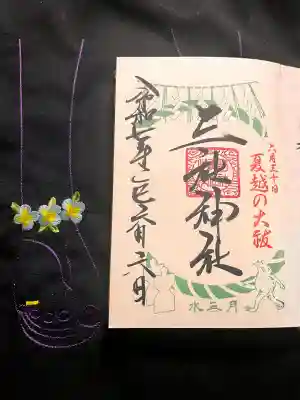 六月三十日
夏越の大祓
三社神社
令和七年乙巳六月六日
水无月